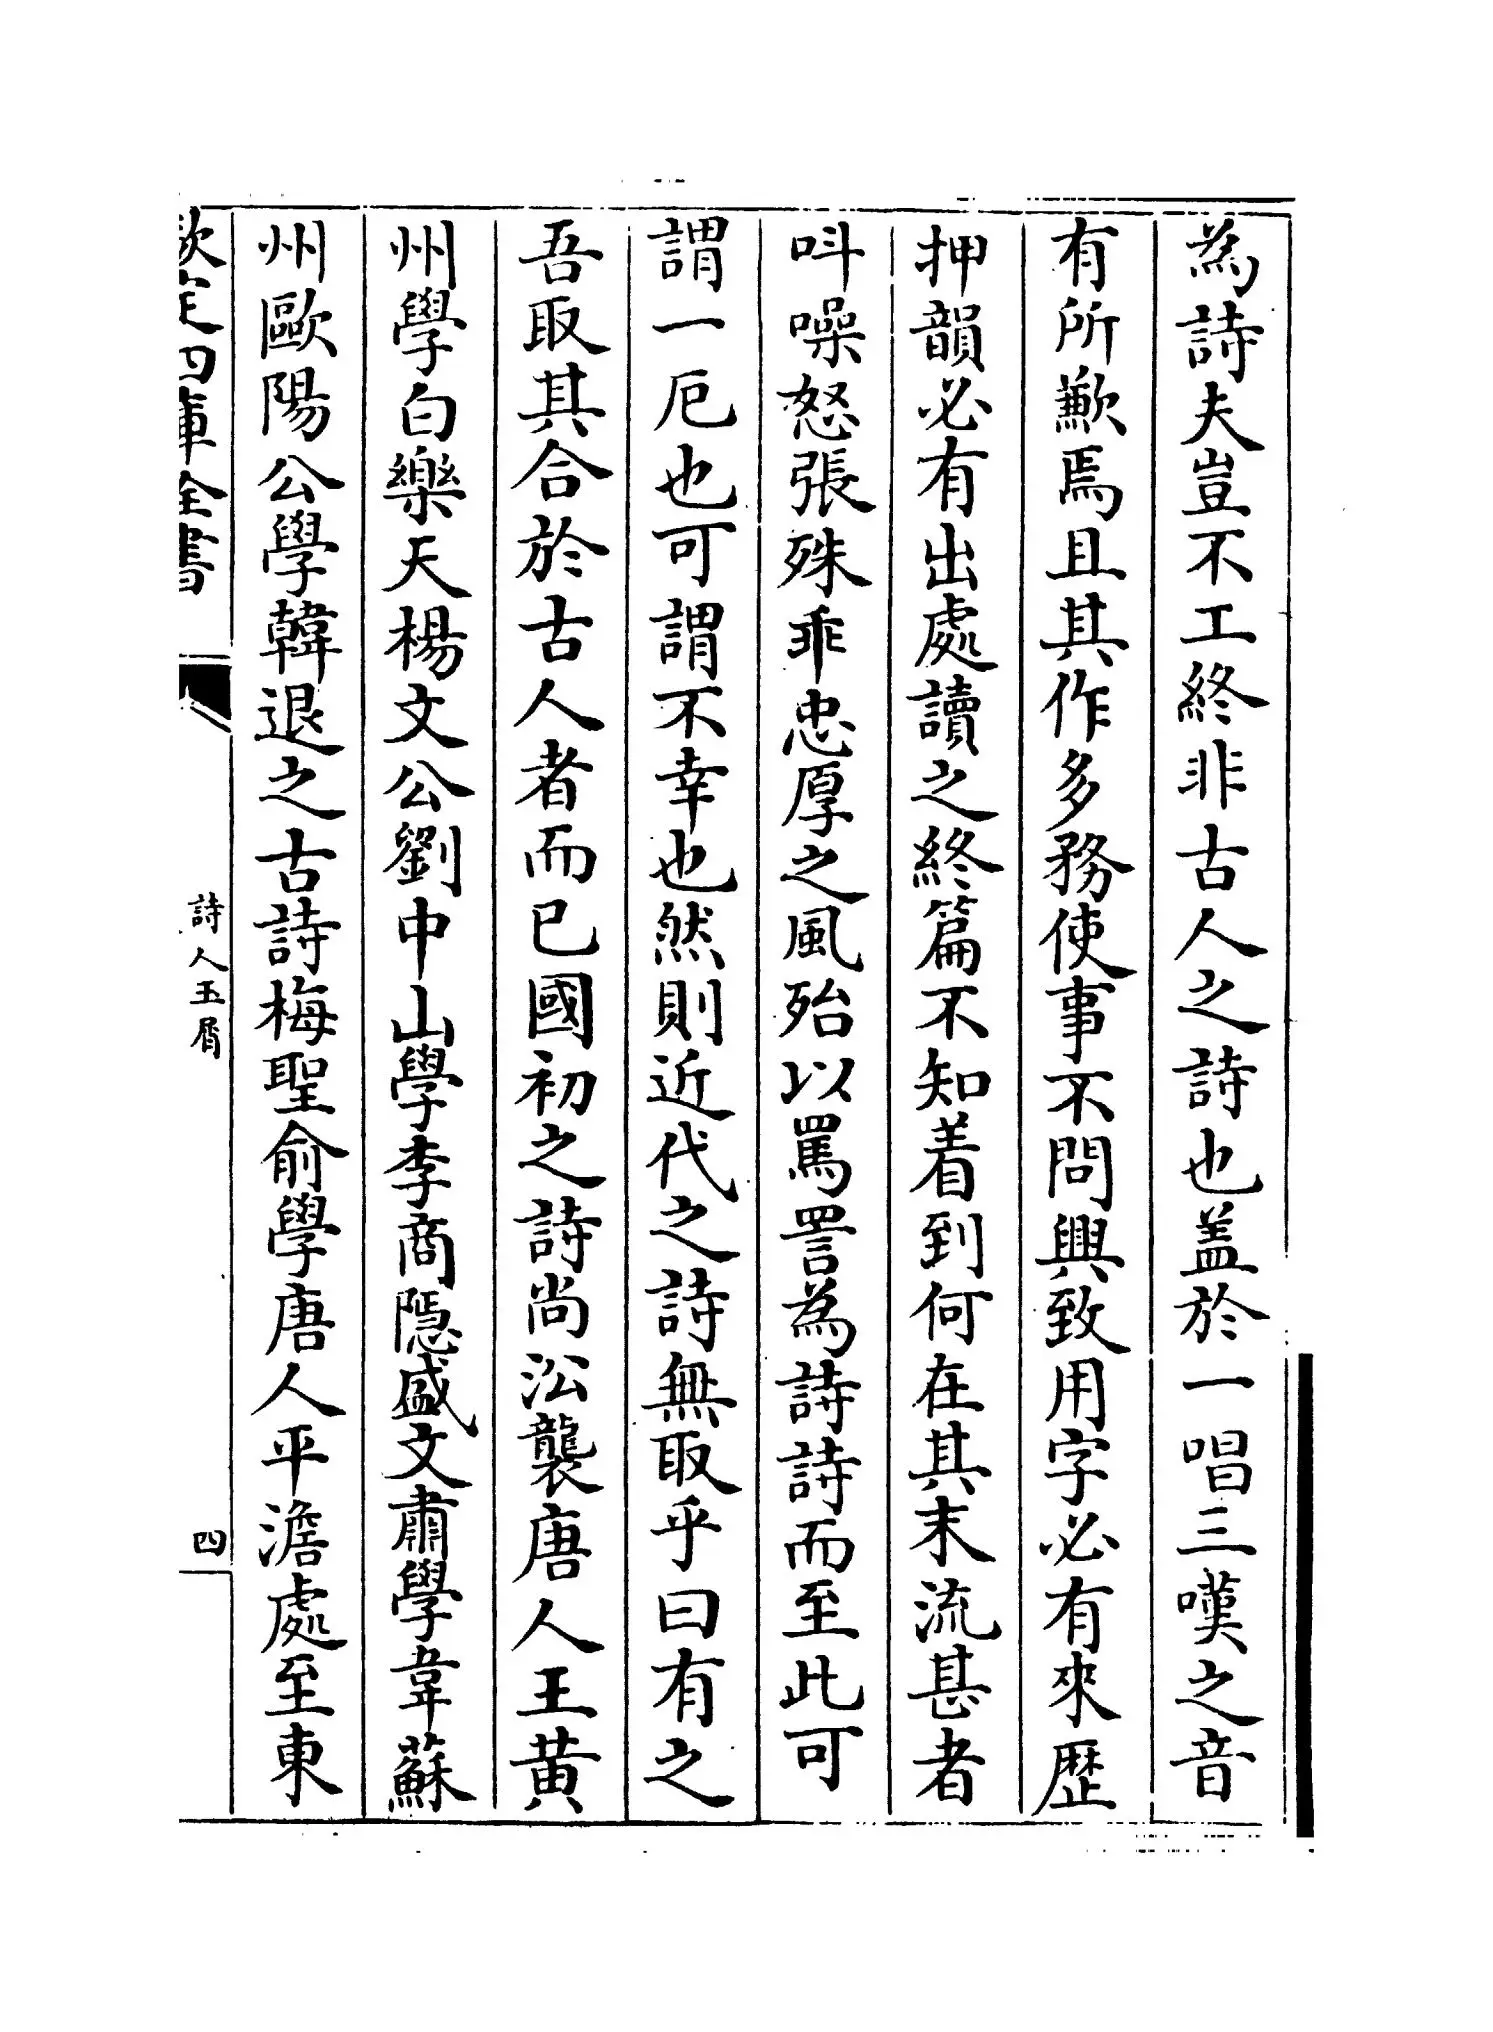 為詩夫豈不工終非古人之詩也盖於一唱三嘆之音
有所歉焉且其作多務使事不問興致用字必有來歷
押韻必有出處讀之終篇不知着到何在其末流甚者
呌噪怒張殊乖忠厚之風殆以罵詈為詩詩而至此可
謂一厄也可謂不幸也然則近代之詩無取乎曰有之
吾取其合於古人者而已國初之詩尚沿襲唐人王黄
州學白樂天楊文公劉中山學李商隱盛文肅學韋蘇
州歐陽公學韓退之古詩梅聖俞學唐人平澹處至東
欽定四庫全書
詩人玉屑
四